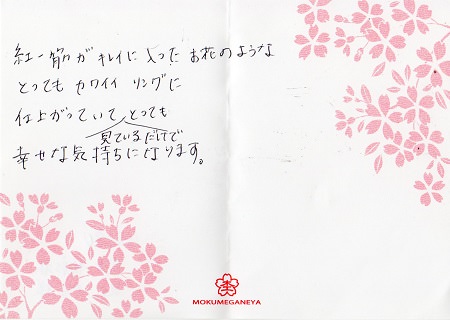 紅一筋がキレイに入ったお花のような
とってもカワイイ リングに
仕上がっていて とっても
見ているだけで
幸せな気持ちになります。
MOKUMEGANEYA